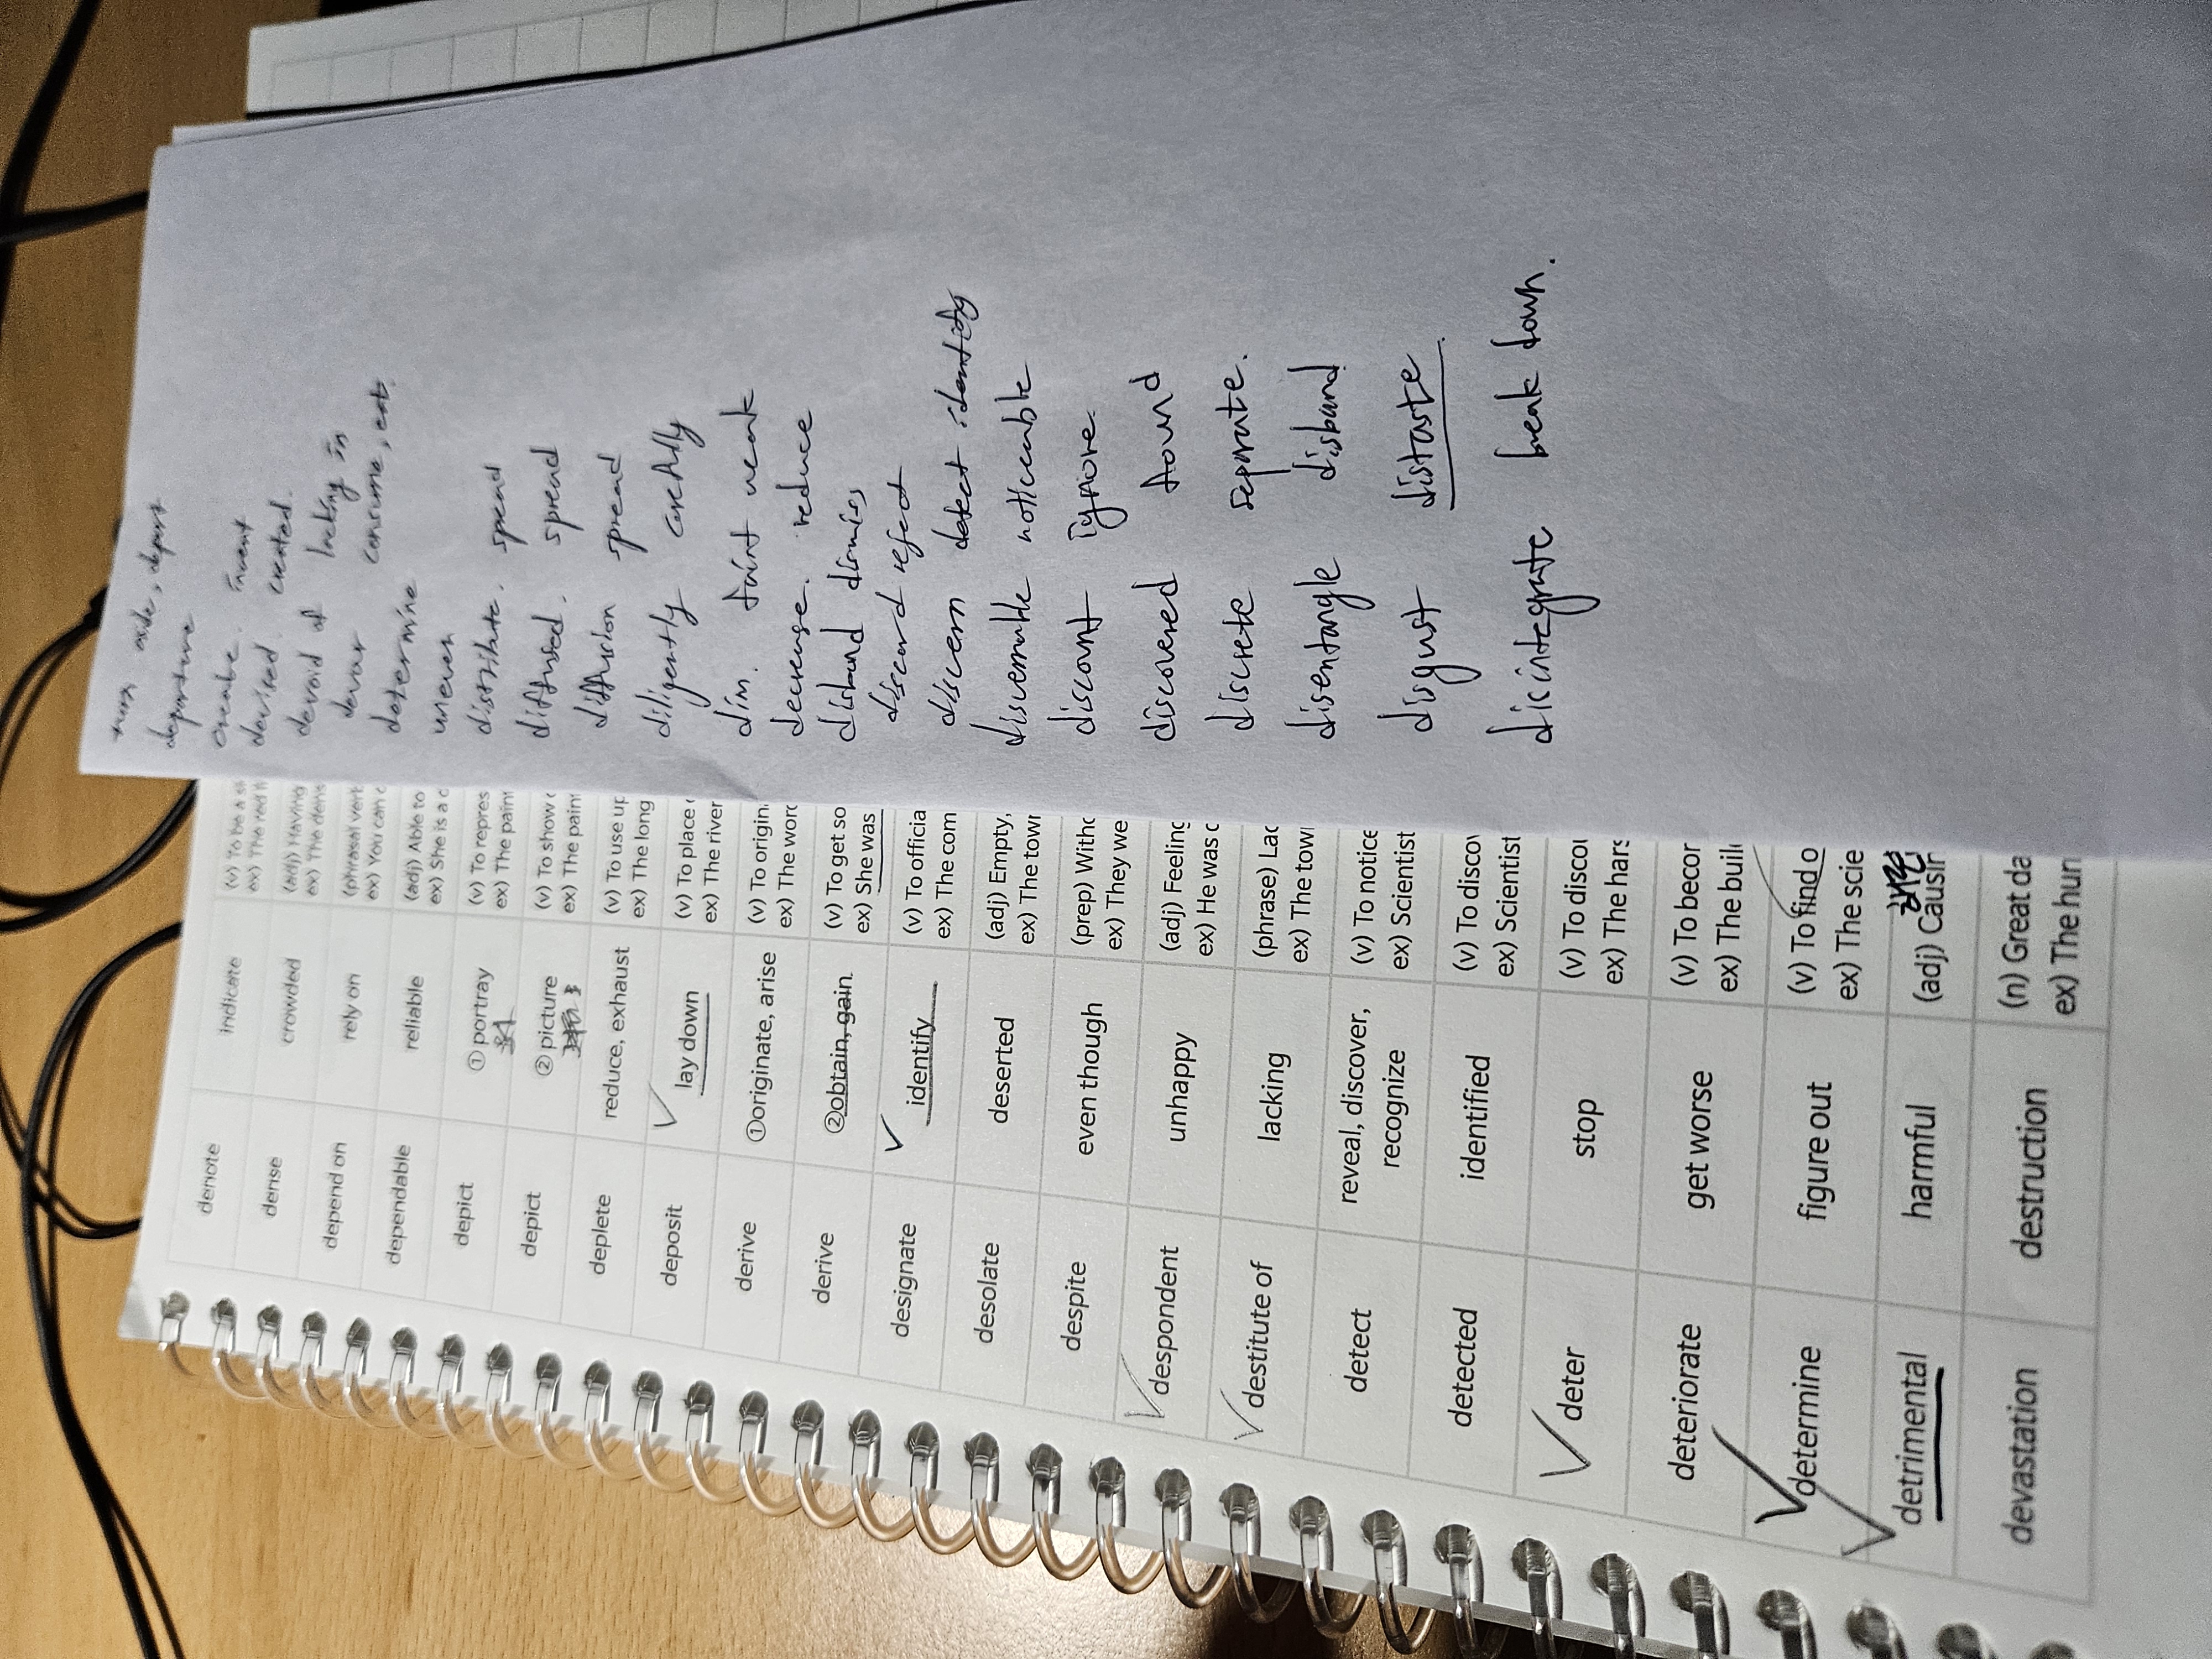 denote indicate (v) To be a
ex) The red
dense crowded (adj) Having
ex) The dens
depend on rely on (phrasal verb
ex) You can
dependable reliable (adj) Able to
ex) She is a c
depict ①portray (v) To repres
ex) The paint
depict ②picture (v) To show
ex) The paint
deplete reduce, exhaust (v) To use up
ex) The long
deposit lay down (v) To place
ex) The river
derive ①originate, arise (v) To origin
ex) The word
derive ②obtain, gain (v) To get so
ex) She was
designate identify (v) To officia
ex) The com
desolate deserted (adj) Empty,
ex) The town
despite even though (prep) Witho
ex) They we
despondent unhappy (adj) Feeling
ex) He was c
destitute of lacking (phrase) Lac
ex) The tow
detect reveal, discover, recognize (v) To notice
ex) Scientist
detected identified (v) To discov
ex) Scientist
deter stop (v) To discou
ex) The hars
deteriorate get worse (v) To becor
ex) The build
determine figure out (v) To find o
ex) The scie
detrimental harmful (adj) Causin
devastation destruction (n) Great da
ex) The hurr
departure
create. invent
devised. created.
devoid of lacking in
devour consume, eat.
determine
uneven
distribute. spread
diffused. spread
diffusion spread
diligently carefully
dim. faint weak
decrease. reduce
disband dismiss
discard reject
discern detect identify
discernible noticeable
discount ignore.
discovered found
discrete separate.
disentangle disband
disgust distaste.
disintegrate break down.